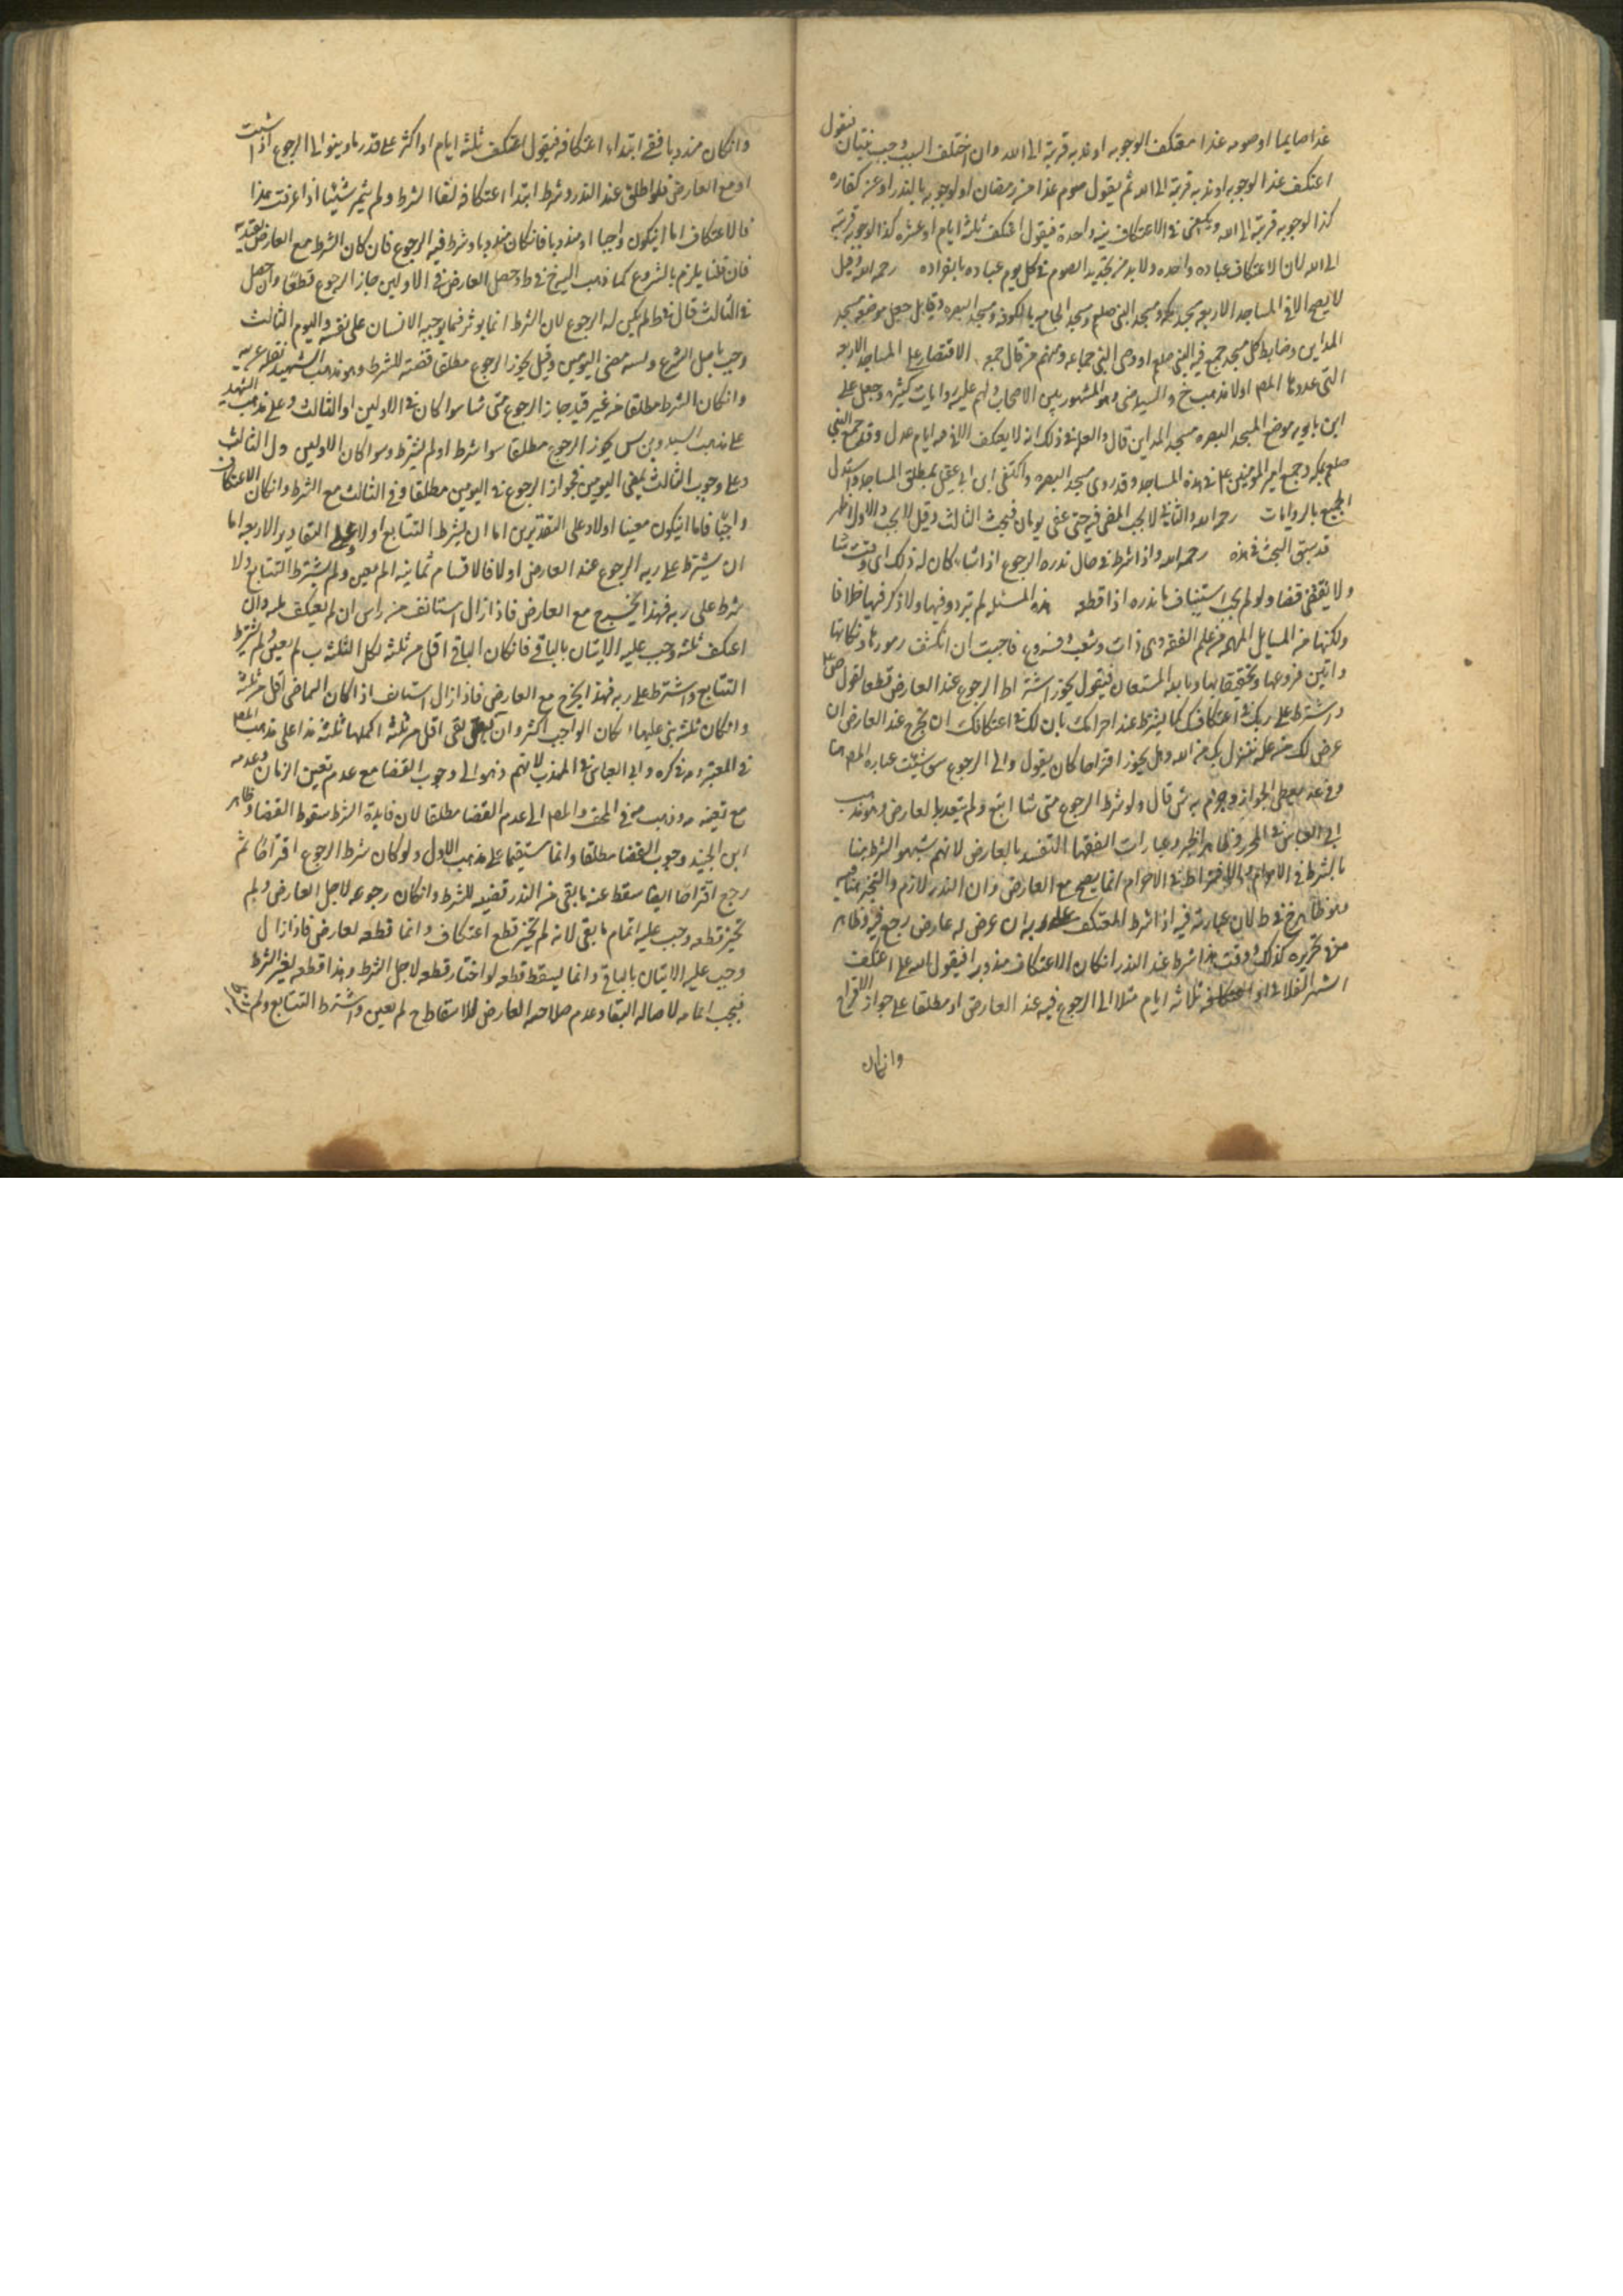 غدا صايما او صومه غدا معتكف الوجوبه او ندبه قربة الى الله وان اختلف السبب وجب نيتان فيقول
اعتكف غدا لوجوبه او ندبه قربة الى الله ثم يقول صوم غدا من رمضان او لوجوبه بالنذر او عن كفارة
كذا لوجوبه قربة الى الله ويكفى فى الاعتكاف نية واحدة فيقول اعتكف ثلثة ايام او عشرة كذا لوجوبه قربة
الى الله لان الاعتكاف عباده واحده ولا بد من تجديد الصوم فى كل يوم عباده بانفراده رحمه الله وقيل
لا يصح الا فى المساجد الاربعة مسجد مكة ومسجد النبى صلعم ومسجد الجامع بالكوفه ومسجد البصره وقايل جعل موضعه مسجد
المداين وضابط كل مسجد جمع فيه النبى صلعم او وصى النبى جماعه ومنهم من قال جمعه الاقتصار على المساجد الاربعه
التى عددها المص اولا مذهب خ والسيد وهو المشهور بين الاصحاب ولهم عليه روايات كثيره وجعل على
ابن بابويه موضع المسجد البصره مسجد المداين قال والعله فى ذلك انه لا يعتكف الا فى امام عدل وقد جمع النبى
صلعم بمكه وجمع امير المؤمنين علم فى هذه المساجد وقد روى مسجد البصره واكتفى ابن ابى عقيل بمطلق المساجد واستدل
الجميع بالروايات رحمه الله والثانى لا يجب المضى فيه حتى يمضى يومان فيجب الثالث وقيل لا يجب والاول اظهر
قد سبق البحث فى هذه رحمه الله واذا شرط فى حال نذره الرجوع اذا شاء كان له ذلك اى وقت شا
ولا يقضى قضا ولو لم يجب استيناف ما نذره اذا قطعه هذه المسئله لم تردد فيها ولا ذكر فيها خلافا
ولكنها من المسايل المهمه من علم الفقه وهى ذات وشعب وفروع فاحببت ان انكشف رموزها ونكاتها
وابين فروعها وتحقيقاتها وبالله المستعان فيقول يجوز اشتراط الرجوع عند العارض قطعا لقول
واشترط على ربك فى اعتكافك كما يشترط عند احرامك بان لك فى اعتكافك ان تخرج عند العارض ان
عرض لك من علة تنزل بك من الله وهل يجوز اقتراحا كان يقول والى الرجوع متى شئت عباره المص هنا
وفى عد يعطى الجواز وجزم به قال ولو شرط الرجوع متى شا اتبع ولم يتعد بالعارض وهو مذهب
ابى العباس فى المحرر وظاهر وعبارات الفقها التقيد بالعارض لانهم شبهوا الشرط هنا
بالشرط فى الاحرام والاشتراط فى الاحرام انما يصح مع العارض وان النذر لازم والتخير ينافيه
وهو ظاهر خ فى ط لان عبارته فيه اذا شرط المعتكف على ربه ان عرض له عارض رجع فيه وظاهر
تحريره كذلك وقت هذا شرط عند النذر ان كان الاعتكاف منذورا فيقول لله على اعتكف
الشهر الفلانى او اعتكافه ثلاثه ايام مثلا الى الرجوع فيه عند العارض او مطلقا على جواز الاقتراح
وانكان
وانكان مندوبا ففى ابتداء اعتكافه فيقول اعتكف ثلثة ايام او اكثر على قدر ما وينوى الى الرجوع اذا شئت
او مع العارض فلو اطلق عند النذر وشرط ابتدا اعتكافه لغا الشرط ولم يثمر شيئا اذا عرفت هذا
فالاعتكاف اما ان يكون واجبا او مندوبا فان كان مندوبا وشرط فيه الرجوع فان كان الشرط مع العارض
فان قلنا يلزم بالشروع كما ذهب الشيخ فى ط وحصل العارض فى الاولين جاز الرجوع قطعا وان حصل
فى الثالث قال فى ط لم يكن له الرجوع لان الشرط انما يوثر فيما يوجبه الانسان على نفسه واليوم الثالث
وجب باصل الشرع مضى اليومين وقيل يجوز الرجوع مطلقا قضية للشرط وهو مذهب الشهيد
وانكان الشرط مطلقا من غير قيد جاز الرجوع متى شا سوا كان فى الاولين او الثالث وعلى مذهب الشهيد
على مذهب السيد وبن س يجوز الرجوع مطلقا سوا شرط او لم يشترط وسوا كان الاولين والثالث
وعلى وجوب الثالث بمضى اليومين يجوز الرجوع فى اليومين مطلقا وفى الثالث مع الشرط وانكان الاعتكاف
واجبا فاما ان يكون معينا اولا وعلى التقديرين اما ان يشترط التتابع اولا وعلى التقادير الاربعه اما
ان يشترط على ربه الرجوع عند العارض اولا فالاقسام ثمانيه المعين ولم يشترط التتابع ولا
شرط على ربه فهذا يخرج مع العارض فاذا زال استانف من راس ان لم يعتكف ثلثه وان
اعتكف ثلثه وجب عليه الاتيان بالباقى فان كان الباقى اقل من ثلثه اكمل الثلثه ب لم يعين ولم يشترط
التتابع واشترط على ربه فهذا يخرج مع العارض فاذا زال استانف اذا كان الماضى اقل من ثلثه
وانكان ثلثه بنى عليها ان كان الواجب اكثر وان بقى اقل من ثلثه اكملها ثلثه هذا على مذهب المص
فى المعتبر وه فى كره وابى العباس فى المهذب لانهم ذهبوا الى وجوب القضا مع عدم تعين الزمان وعدمه
مع تعينه وذهب فى الخ والمص الى عدم القضا مطلقا لان فايدة الشرط سقوط القضا وظاهر
ابن الجنيد وجوب القضا مطلقا وانما يستقيما على مذهب الاول ولو كان شرط الرجوع اقتراحا ثم
رجع اقتراحا ايضا سقط عنه ما بقى من النذر قضيه للشرط وانكان رجوعه لاجل العارض ولم
تخير قطعه وجب عليه اتمام ما بقى لانه لم تخير قطع اعتكاف وانما قطعه لعارض فاذا زال
وجب عليه الاتيان بالباقى وانما يسقط قطعه لو اختار قطعه لاجل الشرط وهذا قطعه لغير الشرط
فيجب اتمامه لاصاله البقا وعدم صلاحيه العارض للاسقاط ج لم يعين واشترط التتابع ولم